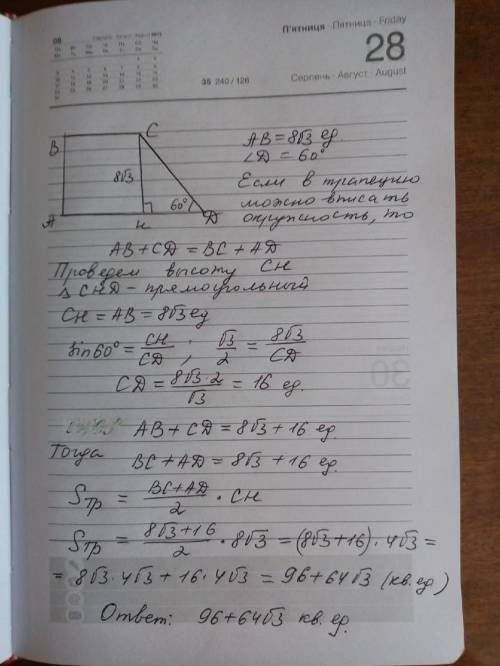 П'ятниця · Пятница · Friday
28
35 240/126
Серпень · Август · August
B C
8√3
A H 60° D
AB = 8√3 ед.
∠D = 60°
Если в трапецию
можно вписать
окружность, то
AB + CD = BC + AD
Проведем высоту CH
△ CHD - прямоугольный
CH = AB = 8√3 ед
sin60° = CH/CD ; √3/2 = 8√3/CD
CD = 8√3·2/√3 = 16 ед.
AB + CD = 8√3 + 16 ед.
Тогда
BC + AD = 8√3 + 16 ед.
Sтр = BC+AD/2 · CH
Sтр = 8√3+16/2 · 8√3 = (8√3+16) · 4√3 =
= 8√3 · 4√3 + 16 · 4√3 = 96 + 64√3 (кв. ед)
Ответ: 96 + 64√3 кв. ед.